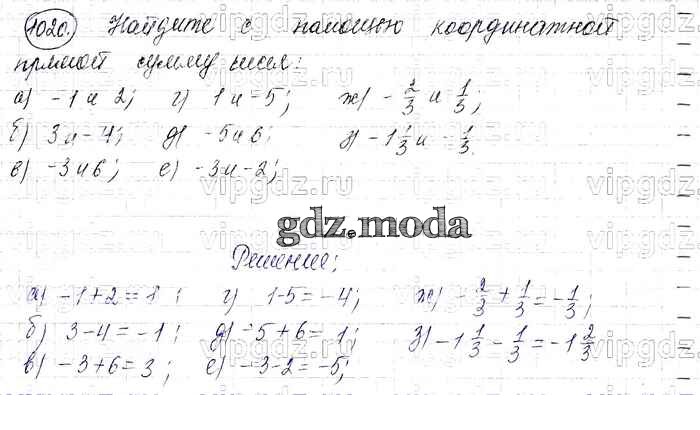 1020. Найдите с помощью координатной
прямой сумму чисел:
а) -1 и 2; г) 1 и -5; ж) -2/3 и 1/3;
б) 3 и -4; д) -5 и 6; з) -1 1/3 и -1/3.
в) -3 и 6; е) -3 и -2;
gdz.moda
Решение:
а) -1+2=1; г) 1-5=-4; ж) -2/3+1/3=-1/3;
б) 3-4=-1; д) -5+6=1; з) -1 1/3-1/3=-1 2/3
в) -3+6=3; е) -3-2=-5;
vipgdz.ru